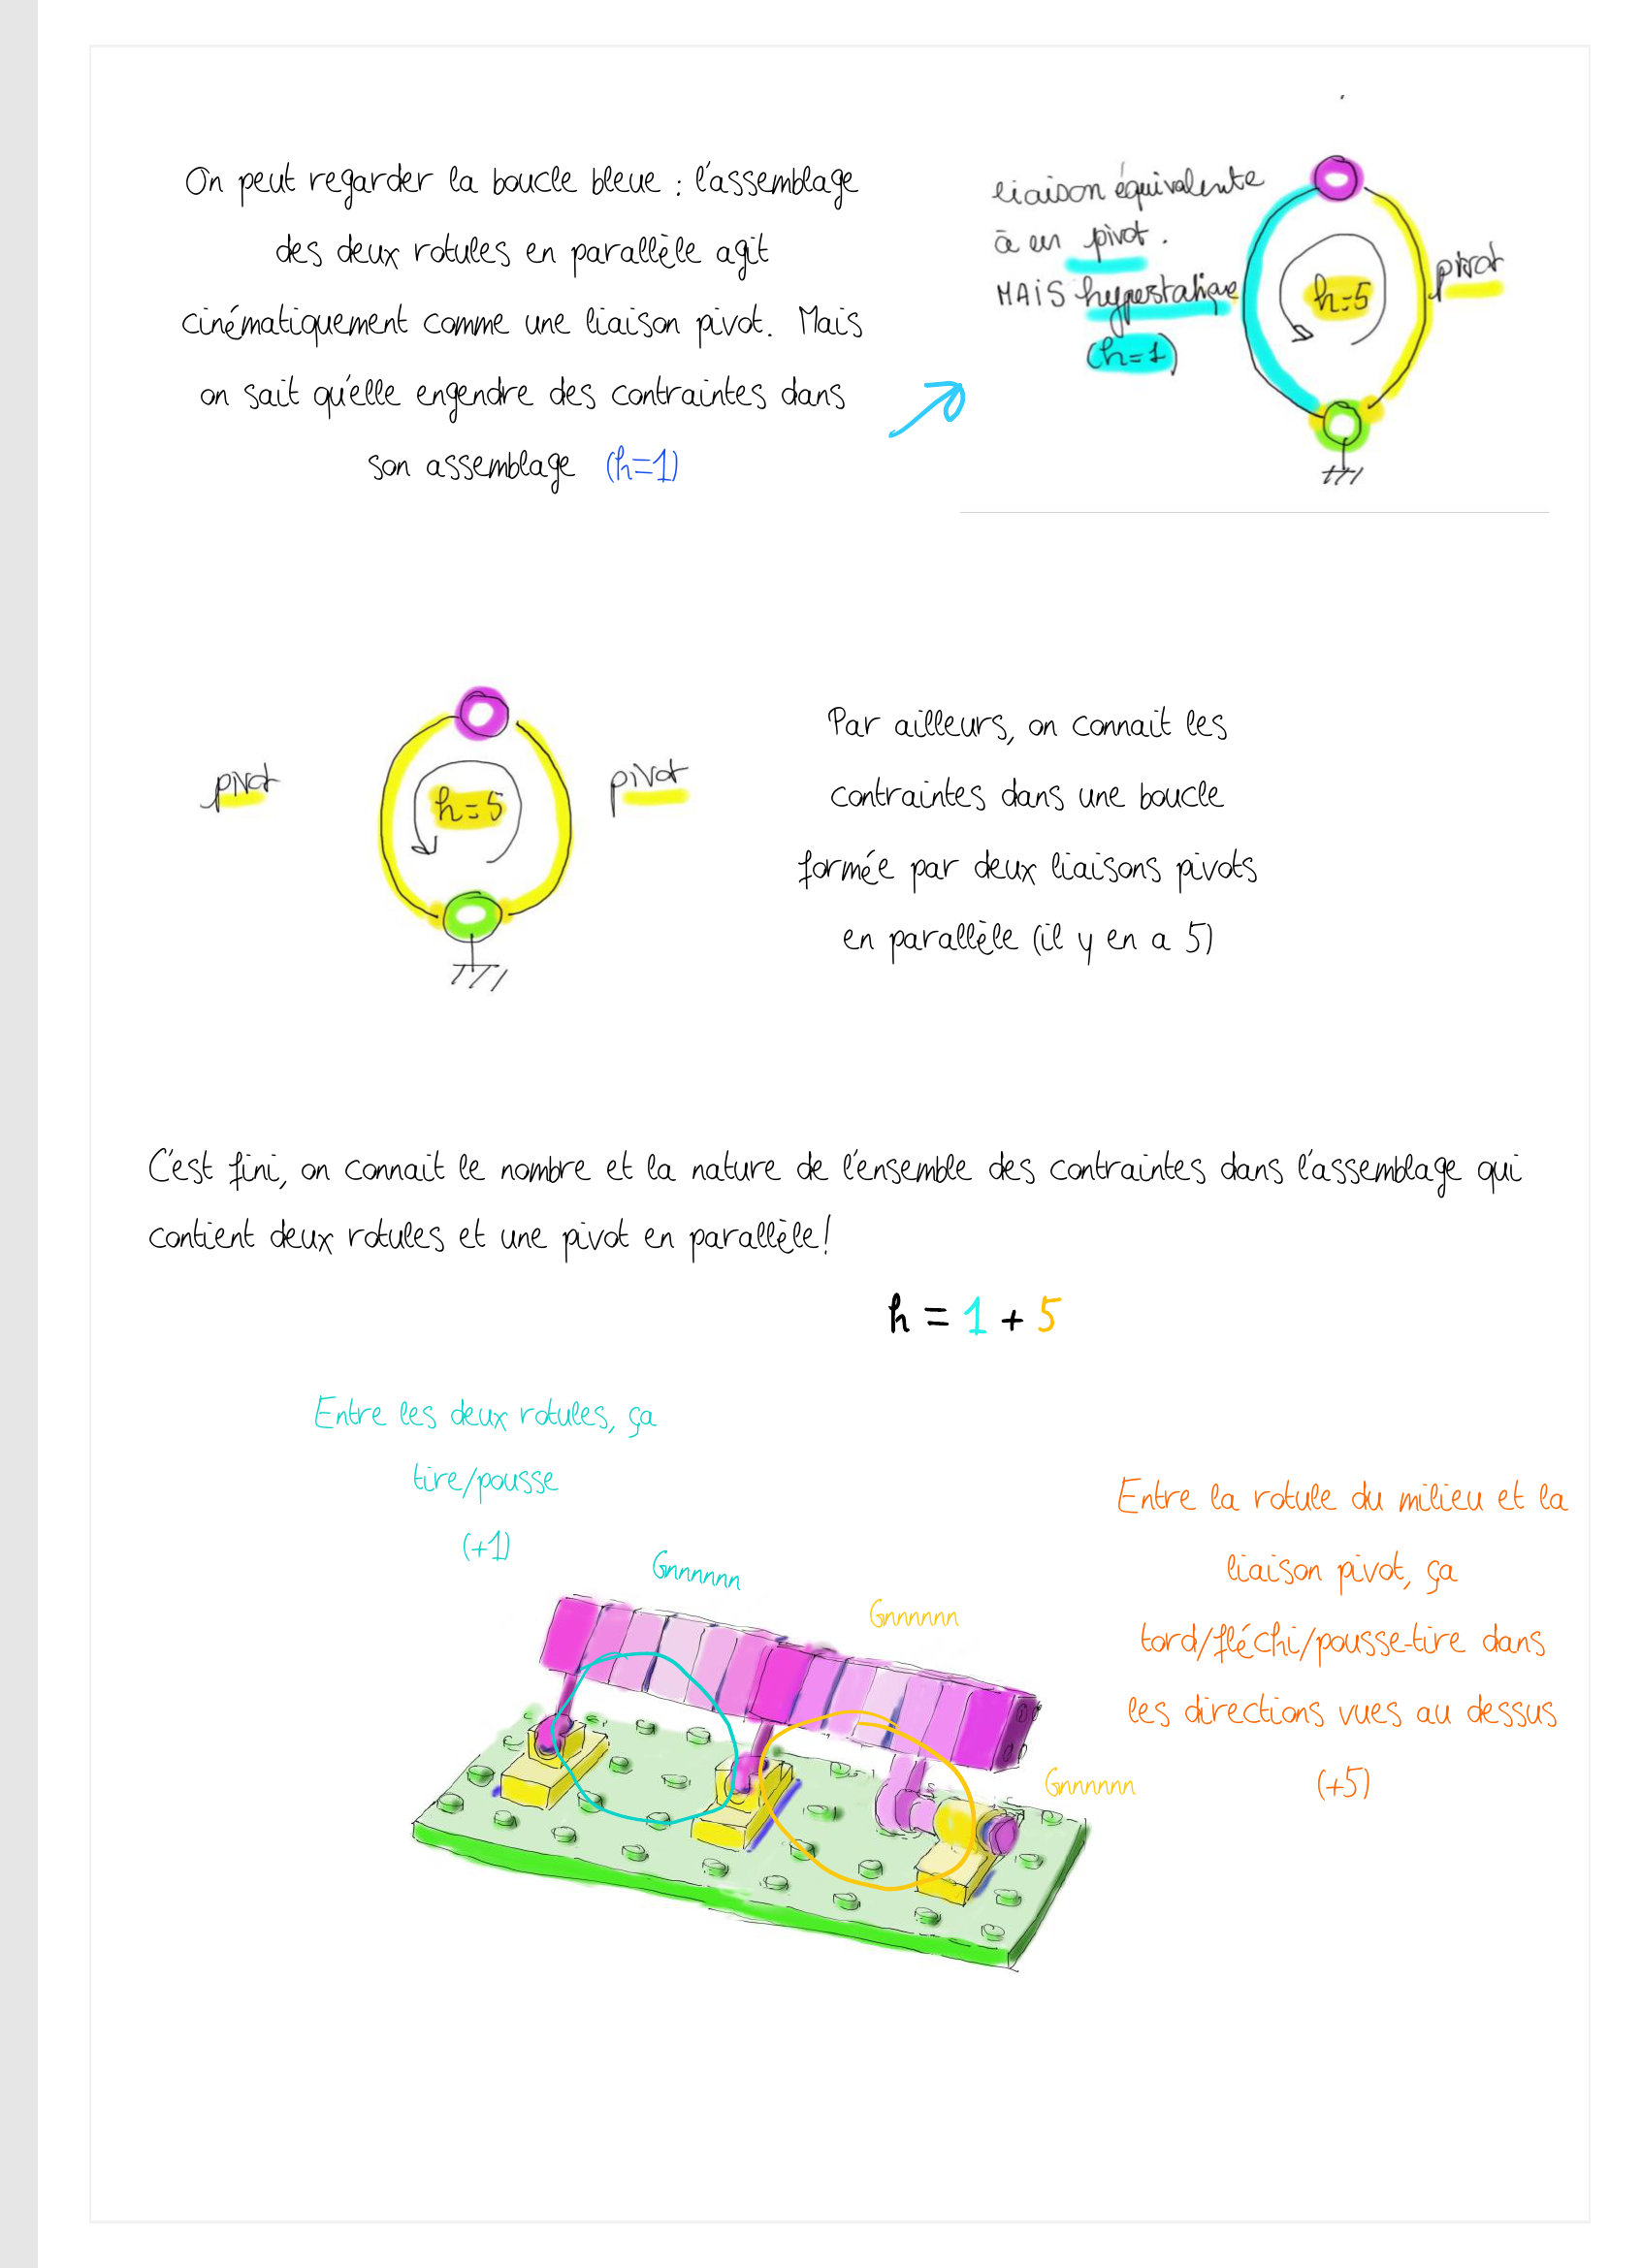 On peut regarder la boucle bleue : l'assemblage
des deux rotules en parallèle agit
cinématiquement comme une liaison pivot. Mais
on sait qu'elle engendre des contraintes dans
son assemblage (h=1)
liaison équivalente
à un pivot.
MAIS hyperstatique
(h=1)
h=5
pivot
pivot
h=5
pivot
Par ailleurs, on connait les
contraintes dans une boucle
formée par deux liaisons pivots
en parallèle (il y en a 5)
C'est fini, on connait le nombre et la nature de l'ensemble des contraintes dans l'assemblage qui
contient deux rotules et une pivot en parallèle!
h = 1 + 5
Entre les deux rotules, ça
tire/pousse
(+1)
Entre la rotule du milieu et la
liaison pivot, ça
tord/fléchi/pousse-tire dans
les directions vues au dessus
(+5)
Gnnnnnn
Gnnnnnn
Gnnnnnn